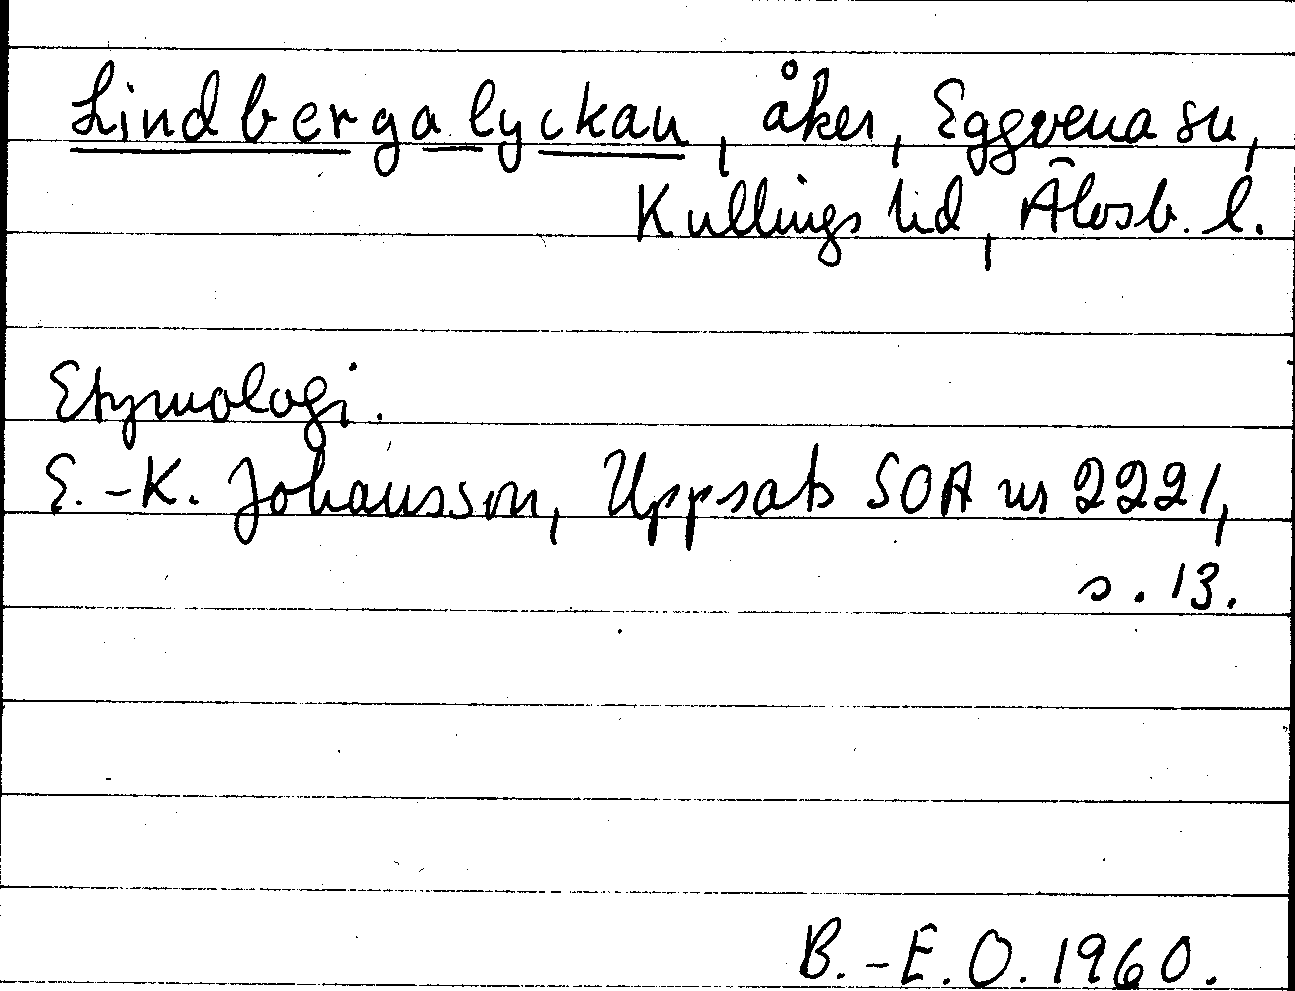 Lindbergalyckan, åker, Eggvena sn,
Kullings hd, Älvsb. l.
Etymologi.
E.-K. Johansson, Uppsats SOA nr 2221,
s. 13.
B.-E.O. 1960.